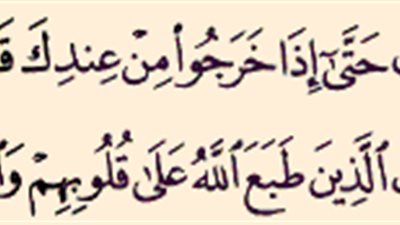 حَتَّىٰٓ إِذَا خَرَجُوا۟ مِنْ عِندِكَ
ٱلَّذِينَ طَبَعَ ٱللَّهُ عَلَىٰ قُلُوبِهِمْ